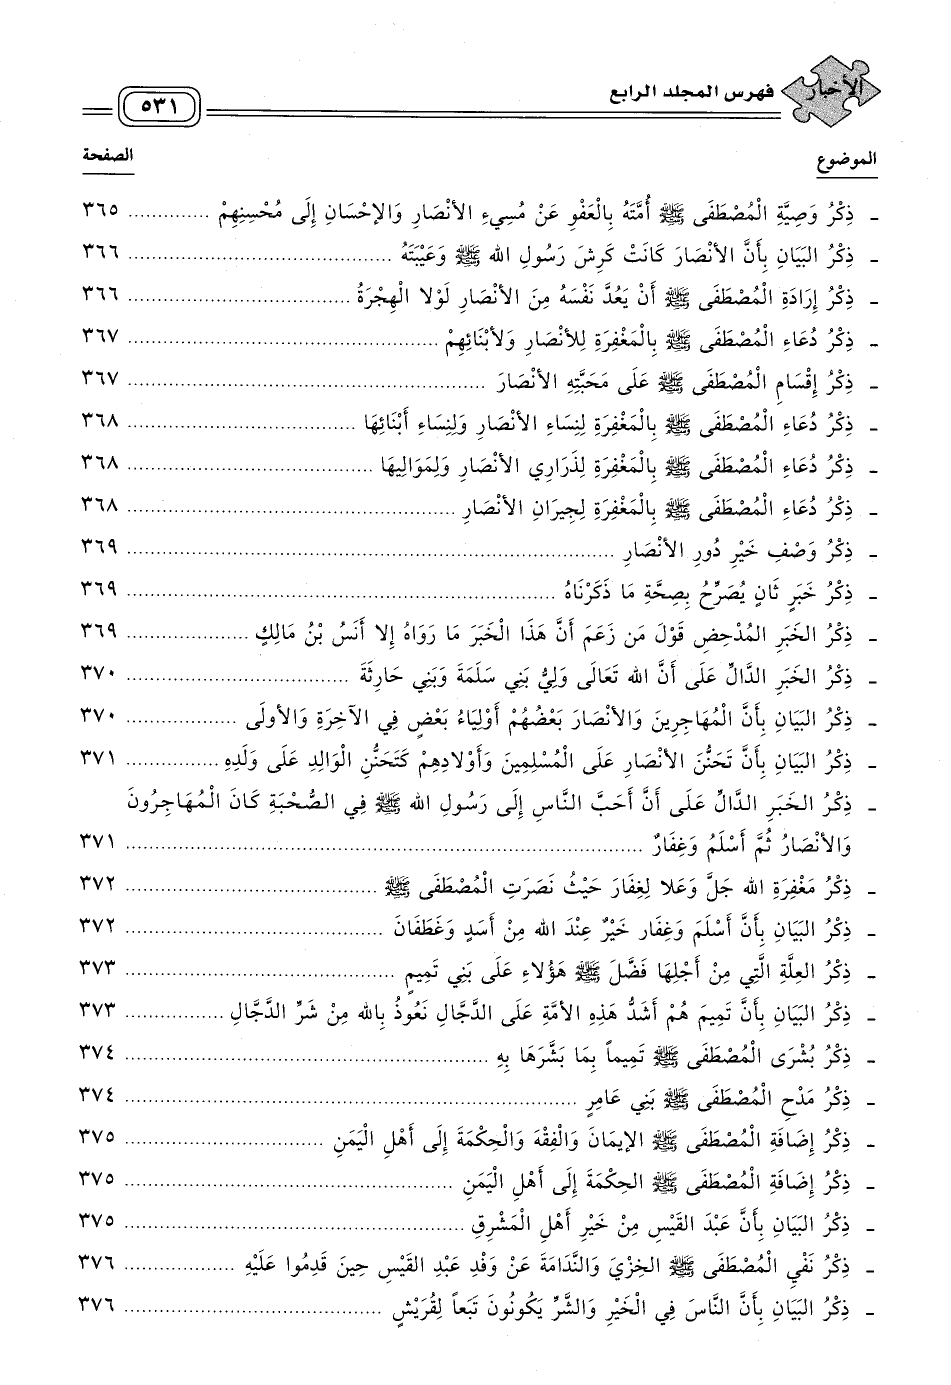 الأخبار
فهرس المجلد الرابع
٥٣١
الموضوع الصفحة
- ذِكْرُ وَصِيَّةِ الْمُصْطَفَى ﷺ أُمَّتَهُ بِالْعَفْوِ عَنْ مُسِيءِ الأَنْصَارِ وَالإِحْسَانِ إِلَى مُحْسِنِهِمْ ............. ٣٦٥
- ذِكْرُ البَيَانِ بِأَنَّ الأَنْصَارَ كَانَتْ كَرِشَ رَسُولِ الله ﷺ وَعَيْبَتَهُ ............. ٣٦٦
- ذِكْرُ إِرَادَةِ الْمُصْطَفَى ﷺ أَنْ يَعُدَّ نَفْسَهُ مِنَ الأَنْصَارِ لَوْلا الْهِجْرَةُ ............. ٣٦٦
- ذِكْرُ دُعَاءِ الْمُصْطَفَى ﷺ بِالْمَغْفِرَةِ لِلأَنْصَارِ وَلأَبْنَائِهِمْ ............. ٣٦٧
- ذِكْرُ إِقْسَامِ الْمُصْطَفَى ﷺ عَلَى مَحَبَّتِهِ الأَنْصَارَ ............. ٣٦٧
- ذِكْرُ دُعَاءِ الْمُصْطَفَى ﷺ بِالْمَغْفِرَةِ لِنِسَاءِ الأَنْصَارِ وَلِنِسَاءِ أَبْنَائِهَا ............. ٣٦٨
- ذِكْرُ دُعَاءِ الْمُصْطَفَى ﷺ بِالْمَغْفِرَةِ لِذَرَارِي الأَنْصَارِ وَلِمَوَالِيهَا ............. ٣٦٨
- ذِكْرُ دُعَاءِ الْمُصْطَفَى ﷺ بِالْمَغْفِرَةِ لِجِيرَانِ الأَنْصَارِ ............. ٣٦٨
- ذِكْرُ وَصْفِ خَيْرِ دُورِ الأَنْصَارِ ............. ٣٦٩
- ذِكْرُ خَبَرٍ ثَانٍ يُصَرِّحُ بِصِحَّةِ مَا ذَكَرْنَاهُ ............. ٣٦٩
- ذِكْرُ الخَبَرِ المُدْحِضِ قَوْلَ مَن زَعَمَ أَنَّ هَذَا الْخَبَرَ مَا رَوَاهُ إِلا أَنَسُ بْنُ مَالِكٍ ............. ٣٦٩
- ذِكْرُ الخَبَرِ الدَّالِّ عَلَى أَنَّ الله تَعَالَى وَلِيُّ بَنِي سَلَمَةَ وَبَنِي حَارِثَةَ ............. ٣٧٠
- ذِكْرُ البَيَانِ بِأَنَّ الْمُهَاجِرِينَ وَالأَنْصَارَ بَعْضُهُمْ أَوْلِيَاءُ بَعْضٍ فِي الآخِرَةِ وَالأُولَى ............. ٣٧٠
- ذِكْرُ البَيَانِ بِأَنَّ تَحَنُّنَ الأَنْصَارِ عَلَى الْمُسْلِمِينَ وَأَوْلادِهِمْ كَتَحَنُّنِ الْوَالِدِ عَلَى وَلَدِهِ ............. ٣٧١
- ذِكْرُ الخَبَرِ الدَّالِّ عَلَى أَنَّ أَحَبَّ النَّاسِ إِلَى رَسُولِ الله ﷺ فِي الصُّحْبَةِ كَانَ الْمُهَاجِرُونَ
وَالأَنْصَارُ ثُمَّ أَسْلَمُ وَغِفَارُ ............. ٣٧١
- ذِكْرُ مَغْفِرَةِ الله جَلَّ وَعَلا لِغِفَارَ حَيْثُ نَصَرَتِ الْمُصْطَفَى ﷺ ............. ٣٧٢
- ذِكْرُ البَيَانِ بِأَنَّ أَسْلَمَ وَغِفَار خَيْرٌ عِنْدَ الله مِنْ أَسَدٍ وَغَطَفَانَ ............. ٣٧٢
- ذِكْرُ العِلَّةِ الَّتِي مِنْ أَجْلِهَا فَضَّلَ ﷺ هَؤُلاءِ عَلَى بَنِي تَمِيمٍ ............. ٣٧٣
- ذِكْرُ البَيَانِ بِأَنَّ تَمِيمَ هُمْ أَشَدُّ هَذِهِ الأُمَّةِ عَلَى الدَّجَّالِ نَعُوذُ بِالله مِنْ شَرِّ الدَّجَّالِ ............. ٣٧٣
- ذِكْرُ بُشْرَى الْمُصْطَفَى ﷺ تَمِيماً بِمَا بَشَّرَهَا بِهِ ............. ٣٧٤
- ذِكْرُ مَدْحِ الْمُصْطَفَى ﷺ بَنِي عَامِرٍ ............. ٣٧٤
- ذِكْرُ إِضَافَةِ الْمُصْطَفَى ﷺ الإِيمَانَ وَالْفِقْهَ وَالْحِكْمَةَ إِلَى أَهْلِ الْيَمَنِ ............. ٣٧٥
- ذِكْرُ إِضَافَةِ الْمُصْطَفَى ﷺ الحِكْمَةَ إِلَى أَهْلِ الْيَمَنِ ............. ٣٧٥
- ذِكْرُ البَيَانِ بِأَنَّ عَبْدَ القَيْسِ مِنْ خَيْرِ أَهْلِ الْمَشْرِقِ ............. ٣٧٥
- ذِكْرُ نَفْيِ الْمُصْطَفَى ﷺ الخِزْيَ وَالنَّدَامَةَ عَنْ وَفْدِ عَبْدِ القَيْسِ حِينَ قَدِمُوا عَلَيْهِ ............. ٣٧٦
- ذِكْرُ البَيَانِ بِأَنَّ النَّاسَ فِي الْخَيْرِ وَالشَّرِّ يَكُونُونَ تَبَعاً لِقُرَيْشٍ ............. ٣٧٦